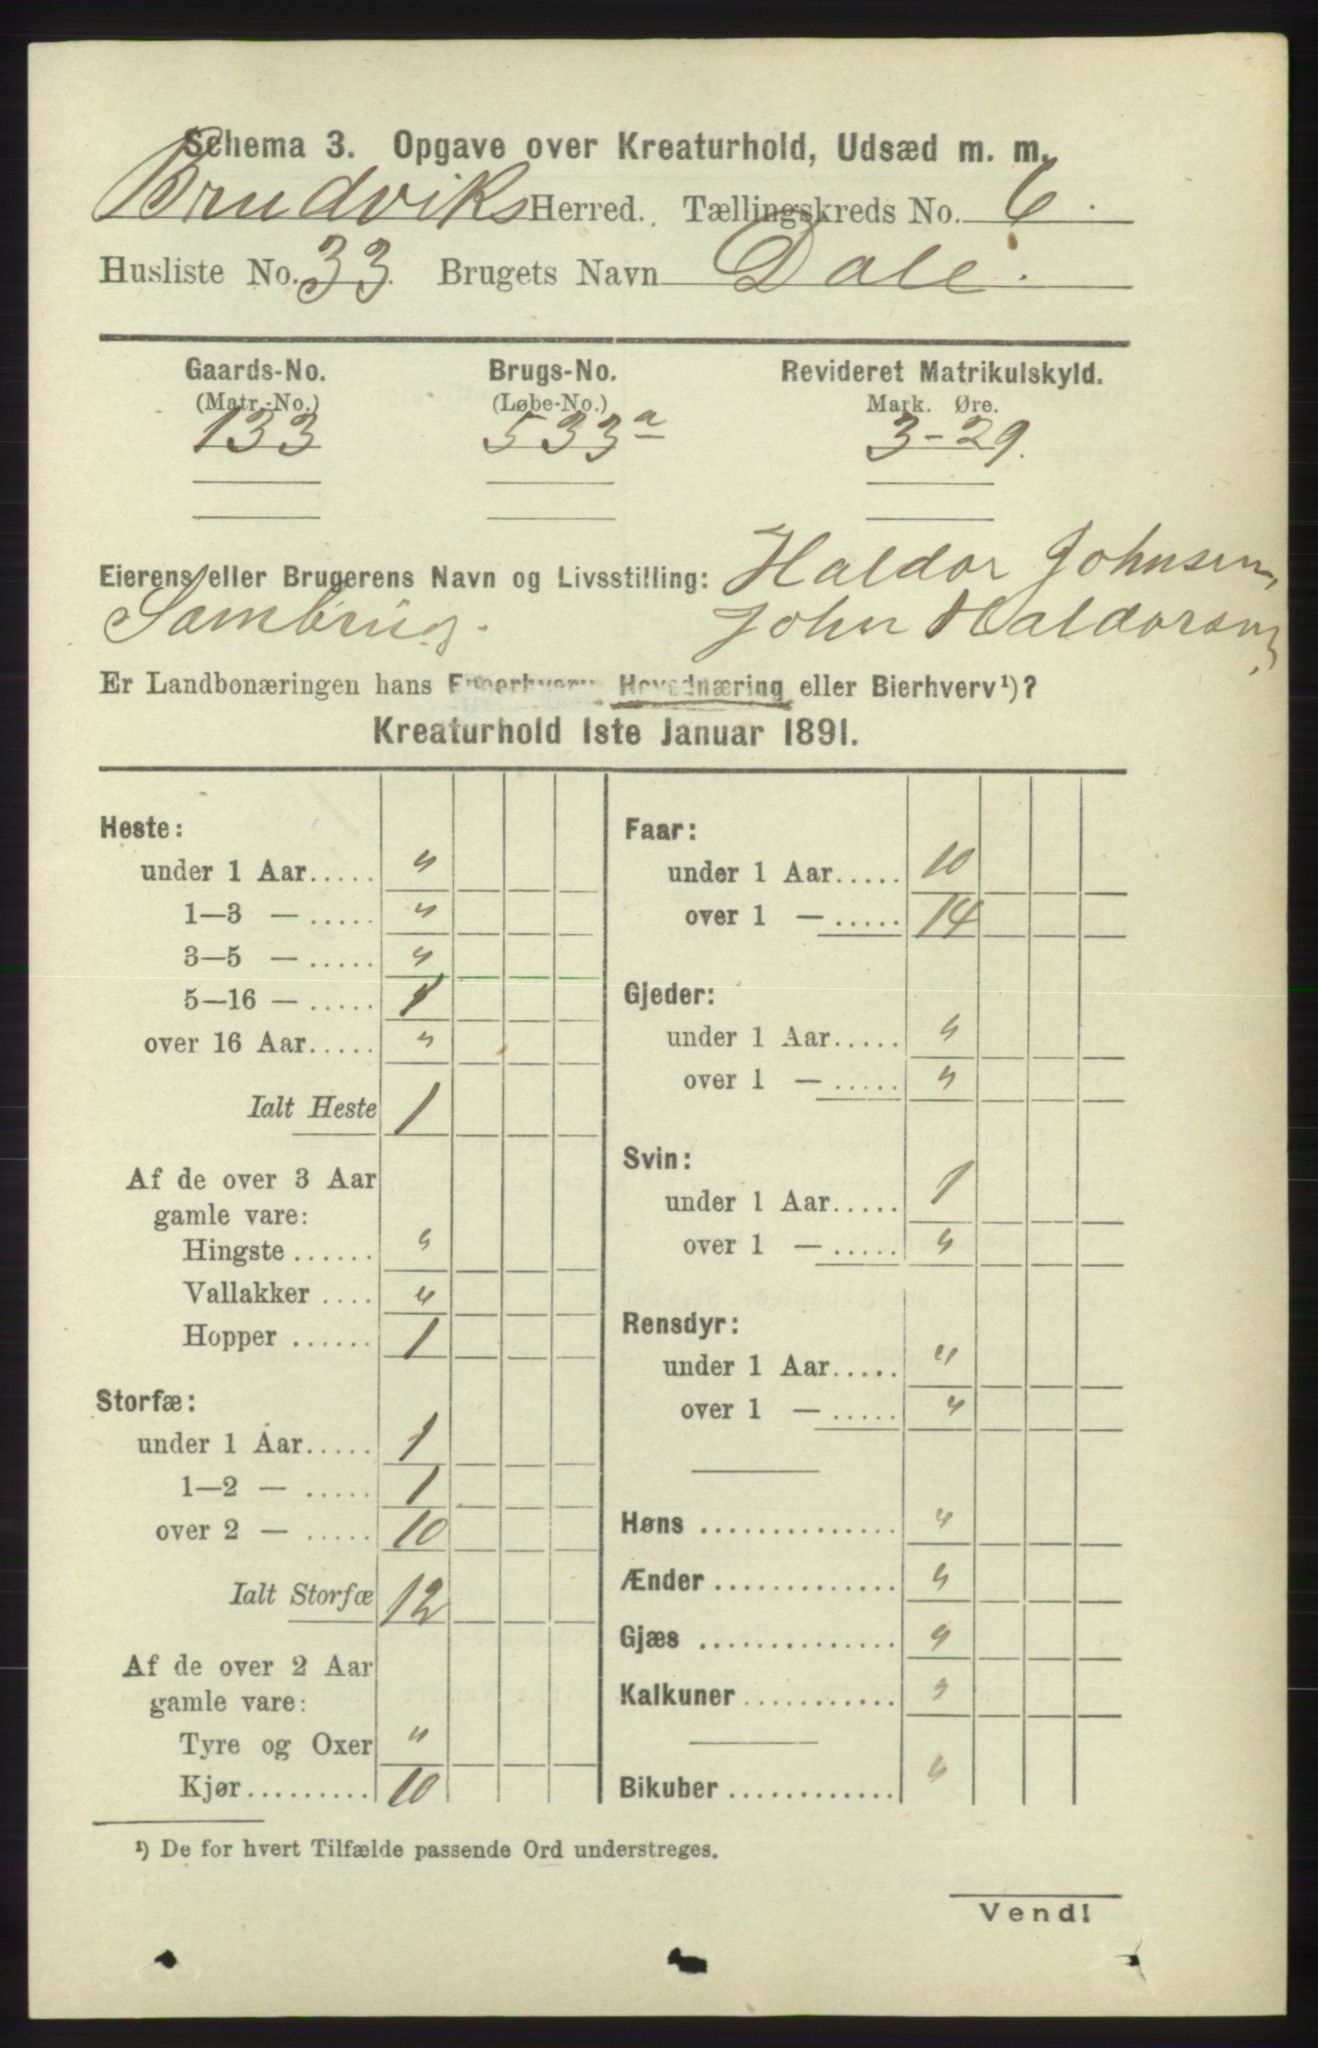 Schema 3. Opgave over Kreaturhold, Udsæd m. m.
Brudviks Herred. Tællingskreds No. 6.
Husliste No. 33. Brugets Navn Dale.
Gaards-No. Brugs-No. Revideret Matrikulskyld.
(Matr.-No.) (Løbe-No.) Mark. Øre.
133 533a 3-29.
Eierens eller Brugerens Navn og Livsstilling: Haldor Johnsen,
Sambrug. John Haldorsen,
Er Landbonæringen hans Eneerhverv, Hovednæring eller Bierhverv¹)?
Kreaturhold 1ste Januar 1891.
Heste:
under 1 Aar..... "
1—3 — ..... "
3—5 — ..... "
5—16 — ..... 1
over 16 Aar..... "
Ialt Heste 1
Af de over 3 Aar
gamle vare:
Hingste ...... "
Vallakker .... "
Hopper ...... 1
Storfæ:
under 1 Aar..... 1
1—2 — ..... 1
over 2 — ..... 10
Ialt Storfæ 12
Af de over 2 Aar
gamle vare:
Tyre og Oxer "
Kjør......... 10
Faar:
under 1 Aar..... 10
over 1 — ..... 14
Gjeder:
under 1 Aar..... "
over 1 — ..... "
Svin:
under 1 Aar..... 1
over 1 — ..... "
Rensdyr:
under 1 Aar..... "
over 1 — ..... "
Høns .............. "
Ænder ............. "
Gjæs .............. "
Kalkuner ........... "
Bikuber ............ "
¹) De for hvert Tilfælde passende Ord understreges.
Vend!